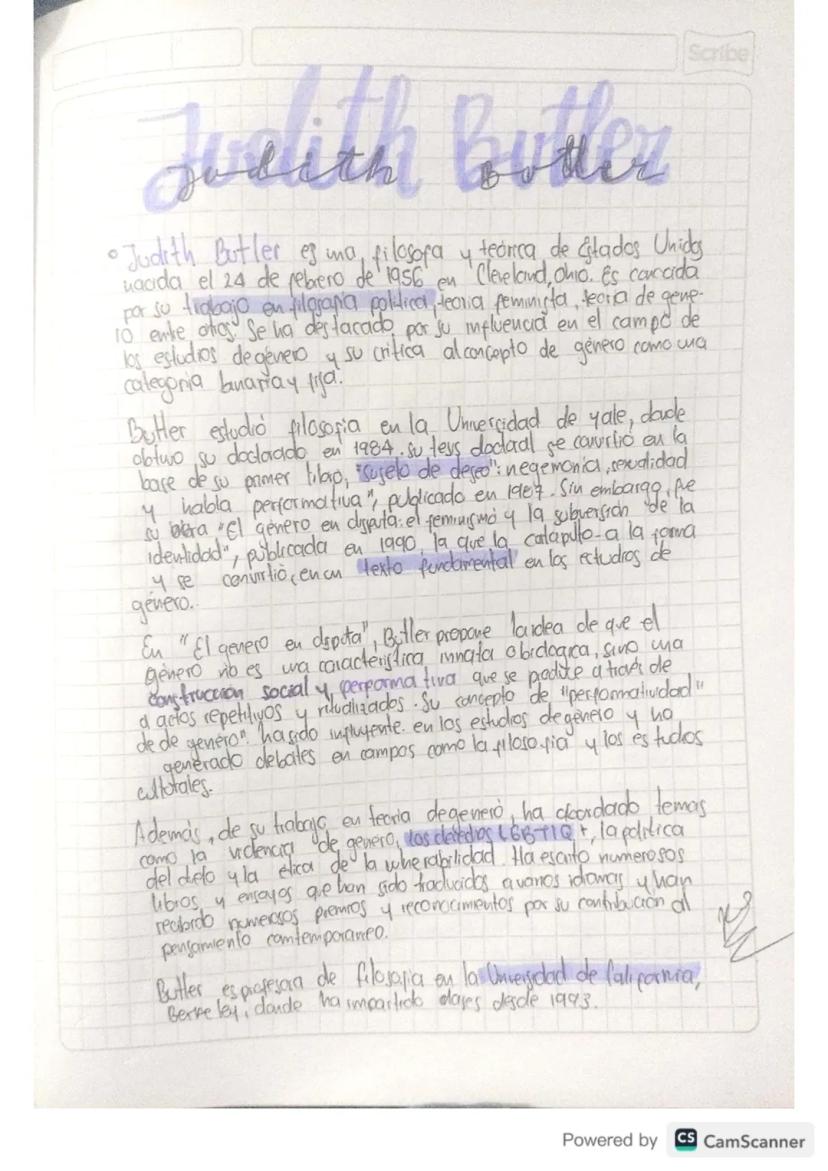 Scribe
Judith Butler
Judith Butler
Judith Butler es una filosofa y teórica de Estados Unidos
nacida el 24 de febrero de 1956 en Cleveland, Ohio. Es conocida
por su trabajo en filosofia politica, teoria feminista, teoria de gene-
ro entre otros. Se ha destacado por su influencia en el campo de
los estudios de género y su critica al concepto de género como una
categoria binaria y fija.
Butler estudió filosofia en la Universidad de yale, donde
obtuvo su doctorado en 1984. su tesis doctoral se convirtió en la
base de su primer libro, "sujeto de deseo": hegemonia, sexualidad
y habla performativa", publicado en 1987. Sin embargo, fue
su obra "El género en disputa: el feminismo y la subversión de la
identidad", publicada en 1990, la que la catapulto a la fama
y se convirtió en un texto fundamental en los estudios de
género.
En "El genero en disputa", Butler propone la idea de que el
género no es una caracteristica innata o biologica, sino una
construcción social y performativa que se produce a través de
d actos repetitivos y ritualizados. Su concepto de "performatividad"
de de genero". ha sido influyente en los estudios de género y ha
generado debates en campos como la filosofia y los estudios
culturales.
Además, de su trabajo en teoria de genero, ha abordado temas
como la violencia de genero, los derechos LGBTIQ+, la politica
del duelo y la ética de la vulnerabilidad. Ha escrito numerosos
libros y ensayos que han sido traducidos a varios idiomas y han
recibido numerosos premios y reconocimientos por su contribución al
pensamiento comtemporaneo.
Butler es profesora de filosofia en la Universidad de California,
Berkeley, donde ha impartido clases desde 1993.
Powered by CS CamScanner